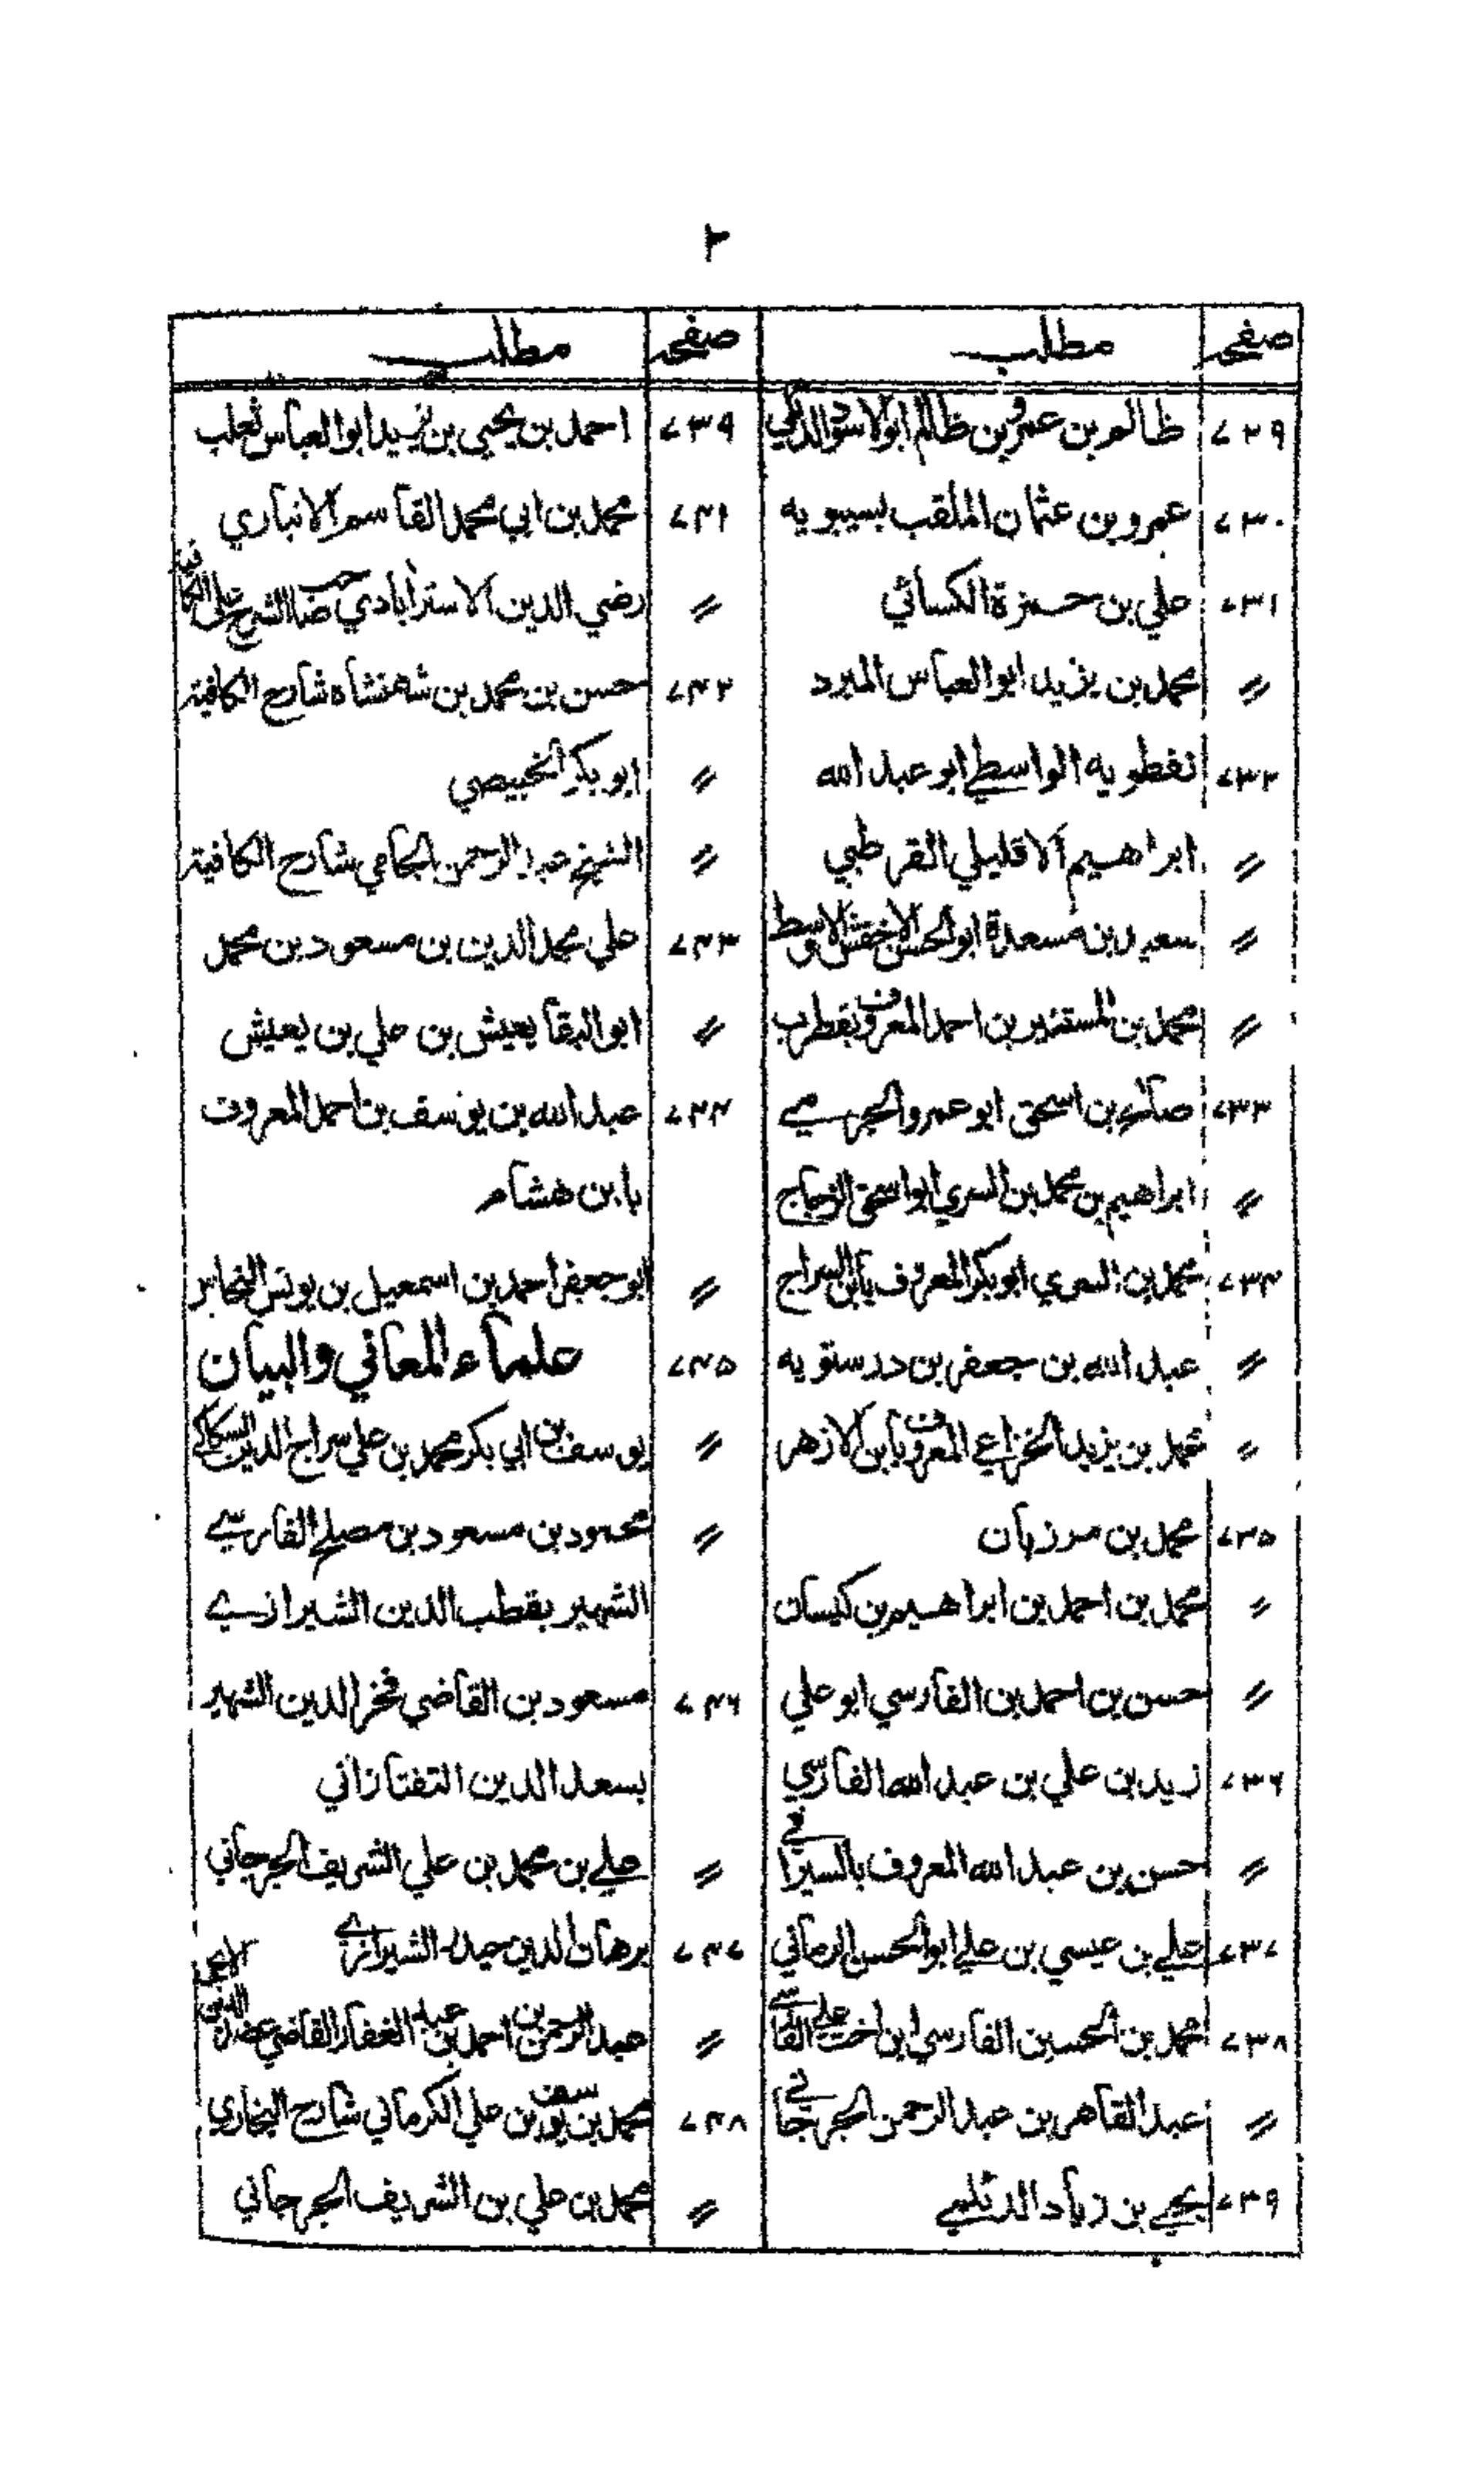 ٢
صفحہ مطلب صفحہ مطلب
٧٢٩ ظالم بن عمرو بن ظالم ابو الاسود الدئلي
٧٣٠ عمرو بن عثمان الملقب بسيبويه
٧٣١ علي بن حمزة الكسائي
〃 محمد بن يزيد ابو العباس المبرد
٧٣٢ نفطويه الواسطي ابو عبد الله
〃 ابراهيم الاقليلي القرطبي
〃 سعيد بن مسعدة ابو الحسن الاخفش الاوسط
〃 محمد بن المستنير بن احمد المعروف بقطرب
٧٣٣ صالح بن اسحق ابو عمرو الجرمي
〃 ابراهيم بن محمد بن السري ابو اسحق الزجاج
٧٣٤ محمد بن السري ابو بكر المعروف بابن السراج
〃 عبد الله بن جعفر بن درستويه
〃 محمد بن يزيد الخزاعي المعروف بابن الازهر
٧٣٥ محمد بن مرزبان
〃 محمد بن احمد بن ابراهيم بن كيسان
〃 حسن بن احمد بن الفارسي ابو علي
٧٣٦ زيد بن علي بن عبد الله الفارسي
〃 حسن بن عبد الله المعروف بالسيرافي
٧٣٧ علي بن عيسى بن علي ابو الحسن الرماني
٧٣٨ محمد بن الحسين الفارسي ابن اخت علي الفارسي
〃 عبد القاهر بن عبد الرحمن الجرجاني
٧٣٩ يحيى بن زياد الديلمي
٧٣٩ احمد بن يحيى بن يزيد ابو العباس ثعلب
٧٤١ محمد بن ابي محمد القاسم الانباري
〃 رضي الدين الاسترابادي صاحب الشرح على الكافية
٧٤٢ حسن بن محمد بن شهنشاه شارح الكافية
〃 ابو بكر الخبيصي
〃 الشيخ عبد الرحمن الجامي شارح الكافية
٧٤٣ علي مجد الدين بن مسعود بن محمد
〃 ابو البقا يعيش بن علي بن يعيش
٧٤٤ عبد الله بن يوسف بن احمد المعروف
بابن هشام
〃 ابو جعفر احمد بن اسمعيل بن يونس النحاس
٧٤٥ علماء المعاني والبيان
〃 يوسف بن ابي بكر محمد بن علي سراج الدين السكاكي
〃 محمود بن مسعود بن مصلح الفارسي
الشهير بقطب الدين الشيرازي
٧٤٦ مسعود بن القاضي فخر الدين الشهير
بسعد الدين التفتازاني
〃 علي بن محمد بن علي الشريف الجرجاني
٧٤٧ برهان الدين حيدر الشيرازي
〃 عبد الرحمن بن احمد بن عبد الغفار القاضي عضد الدين الايجي
٧٤٨ محمد بن يوسف بن علي الكرماني شارح البخاري
〃 محمد بن علي بن الشريف الجرجاني